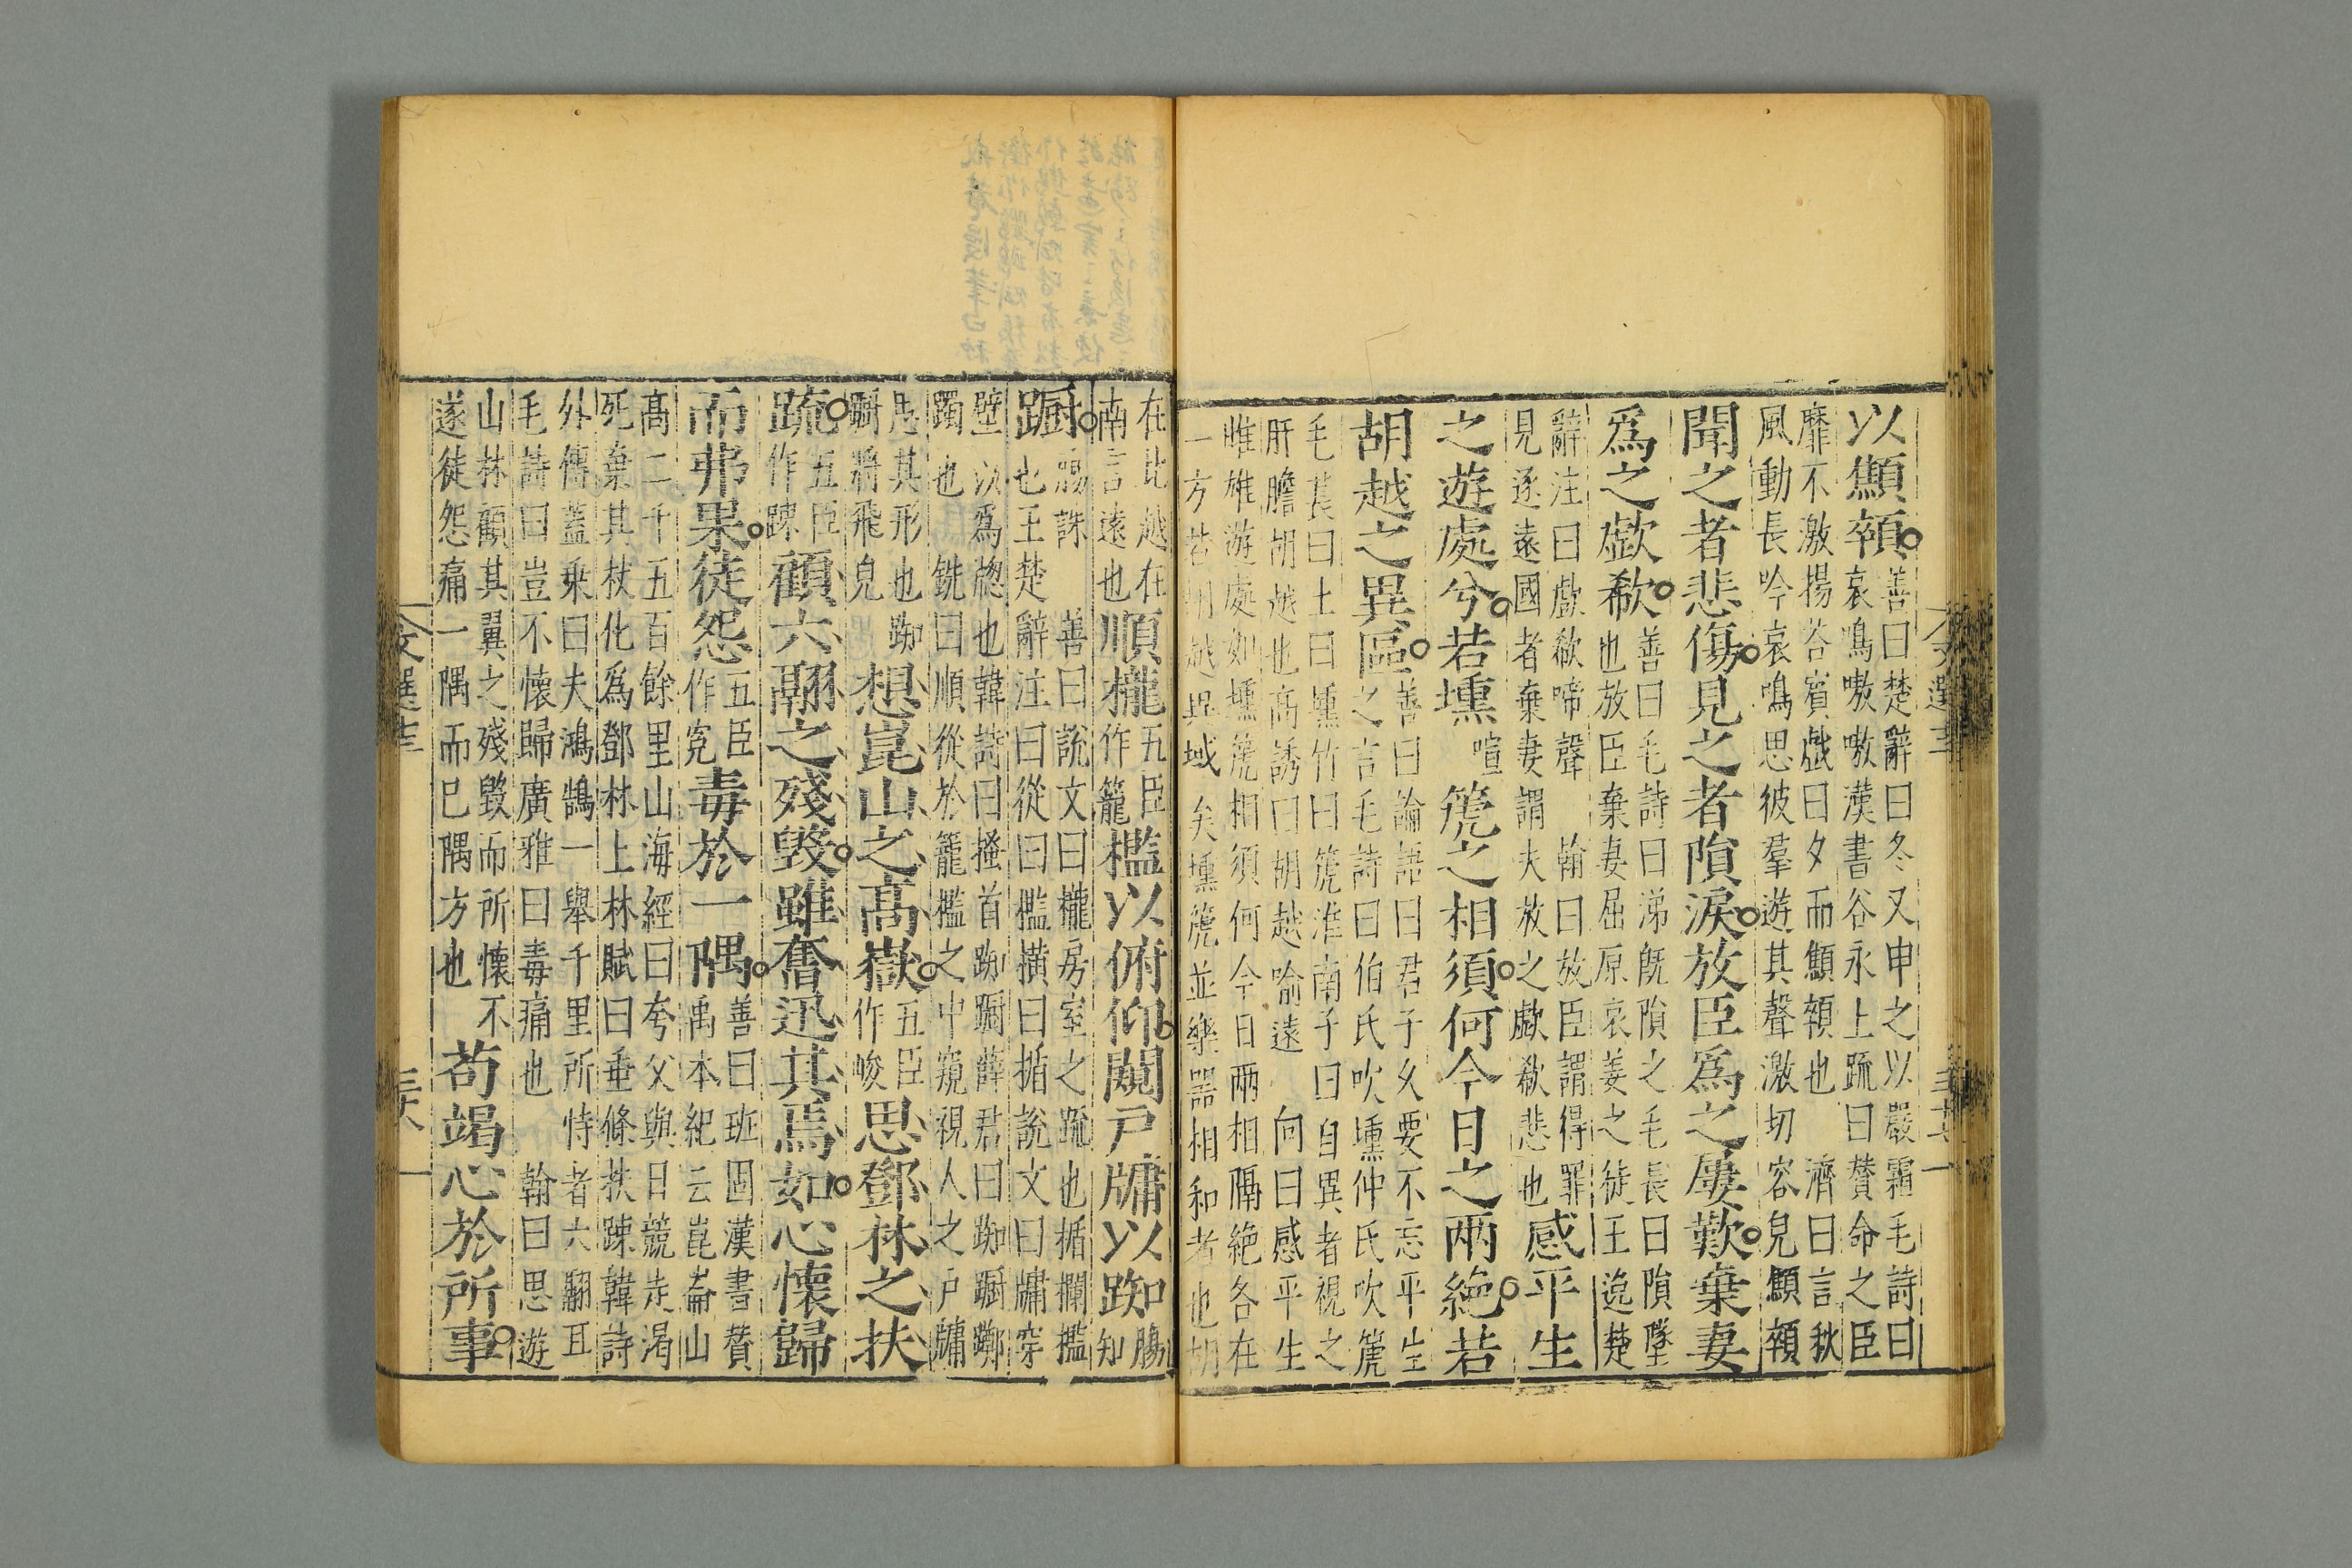 以顦顇善曰楚辭曰冬又申之以嚴霜毛詩曰
哀鳴嗷嗷漢書谷永上疏曰贊命之臣
靡不激揚荅賓戯曰夕而顦顇也　濟曰言秋
風動長吟哀鳴思彼羣遊其聲激切容皃顦顇
聞之者悲傷見之者隕淚放臣爲之屢歎棄妻
爲之歔欷善曰毛詩曰涕旣隕之毛長曰隕墜
也放臣棄妻屈原哀姜之徒王逸楚
辭注曰歔欷啼聲　翰曰放臣謂得罪
見逐遠國者棄妻謂夫放之歔欷悲也感平生
之遊處兮若壎喧篪之相須何今日之兩絶若
胡越之異區善曰論語曰君子久要不忘平生
之言毛詩曰伯氏吹壎仲氏吹篪
毛萇曰土曰壎竹曰篪淮南子曰自異者視之
肝膽胡越也高誘曰胡越喻遠　向曰感平生
雌雄游處如壎篪相須何今日兩相隔絶各在
一方若胡越異域矣壎篪並樂噐相和者也胡
在北越在
南言遠也順櫳五臣作籠檻以俯仰闚戸牖以踟腸知
蹰腸誅　善曰說文曰櫳房室之䟽也楯欄檻
也王楚辭注曰從曰檻橫曰楯說文曰牖穿
壁以爲牎也韓詩曰搔首踟蹰薛君曰踟蹰躑
躅也　銑曰順從於籠檻之中窺視人之戸牖
馬其形也踟
蹰將飛皃想崑山之高嶽五臣作峻思鄧林之扶
䟽五臣作踈顧六翮之殘毀雖奮迅其焉如心懷歸
而弗果徒怨五臣作寃毒於一隅善曰班固漢書贊
禹本紀云崑崙山
高二千五百餘里山海經曰夸父與日競走渴
死棄其杖化爲鄧林上林賦曰垂條扶踈韓詩
外傳蓋乗曰夫鴻鵠一舉千里所恃者六翮耳
毛詩曰豈不懷歸廣雅曰毒痛也　翰曰思遊
山林顧其翼之殘毀而所懷不
遂徒怨痛一隅而已隅方也苟竭心於所事
文選十三
三六